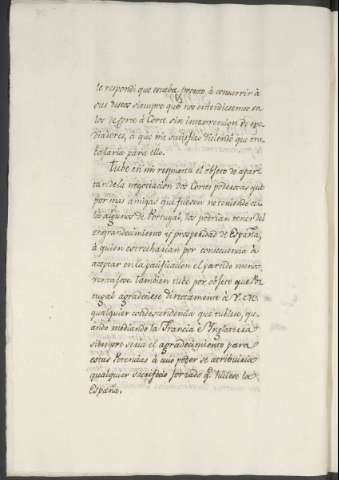 le respondi que estaba pronto, à concurrir à
sus deseos siempre que nos entendiesemos en
los de Corte à Corte sin intervencion de me-
diadores, à que me satisfizo diciendo que tra-
bajaria para ello.
Tube en mi respuesta el objeto de apar-
tar de la negociacion dos Cortes poderosas que
por mas amigas que fuesen no teniendo ce-
los algunos de Portugal, los podrian tener del
engrandecimiento y prosperidad de España,
à quien estrecharian por consecuencia à
aceptar en la pacificacion el partido menos
ventajoso. Tambien tube por objeto que Por-
tugal agradeciese directamente à V. M.
qualquier condescendencia que tubiese, qu-
ando mediando la Francia è Ynglaterra
siempre seria el agradecimiento para
estas Potencias à cuio poder se atribuiria
qualquier sacrificio forzado q.e hiciese la
España.